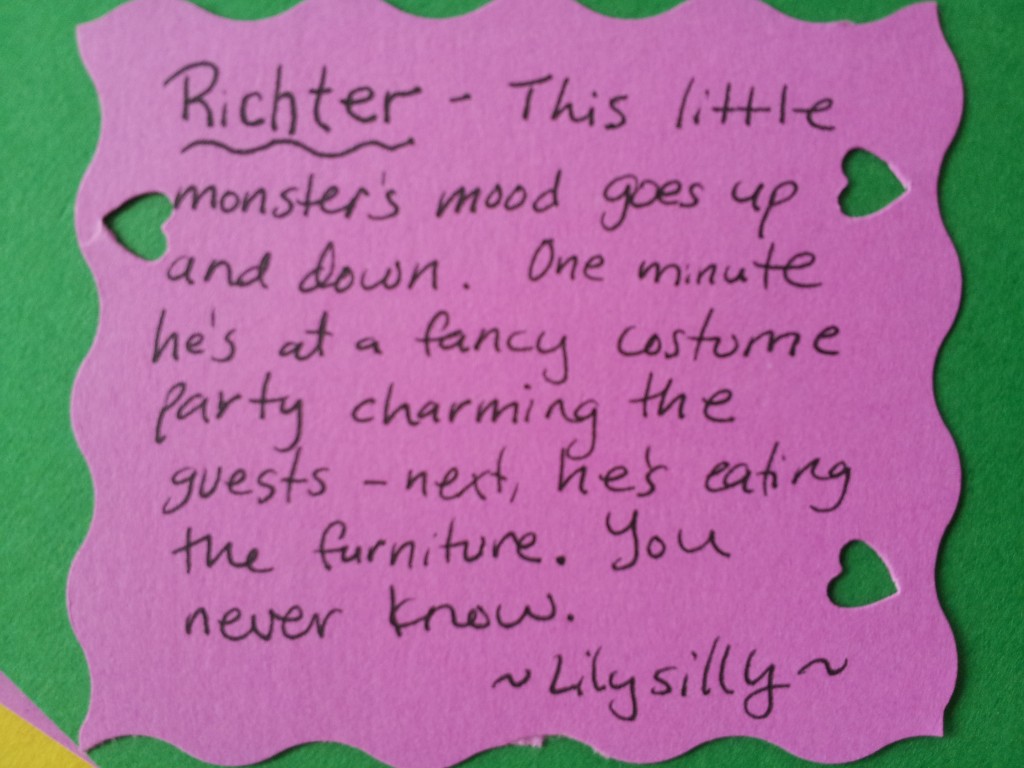 Richter - This little
monster's mood goes up
and down. One minute
he's at a fancy costume
party charming the
guests - next, he's eating
the furniture. You
never know.
~Lilysilly~